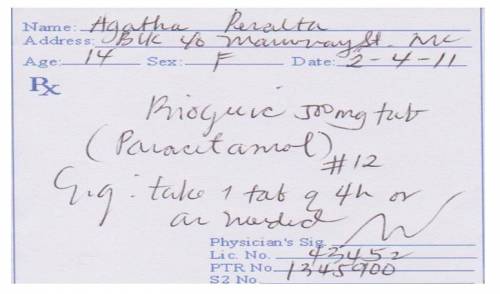 Name: Agatha Peralta
Address: Blk 40 St. MC
Age: 14 Sex: F Date: 2-4-11
Rx
500mg tab
(Paracetamol)
#12
Sig: take 1 tab q 4h or
as needed
Physician's Sig.
Lic No. 43452
PTR No. 1345900
S2 No